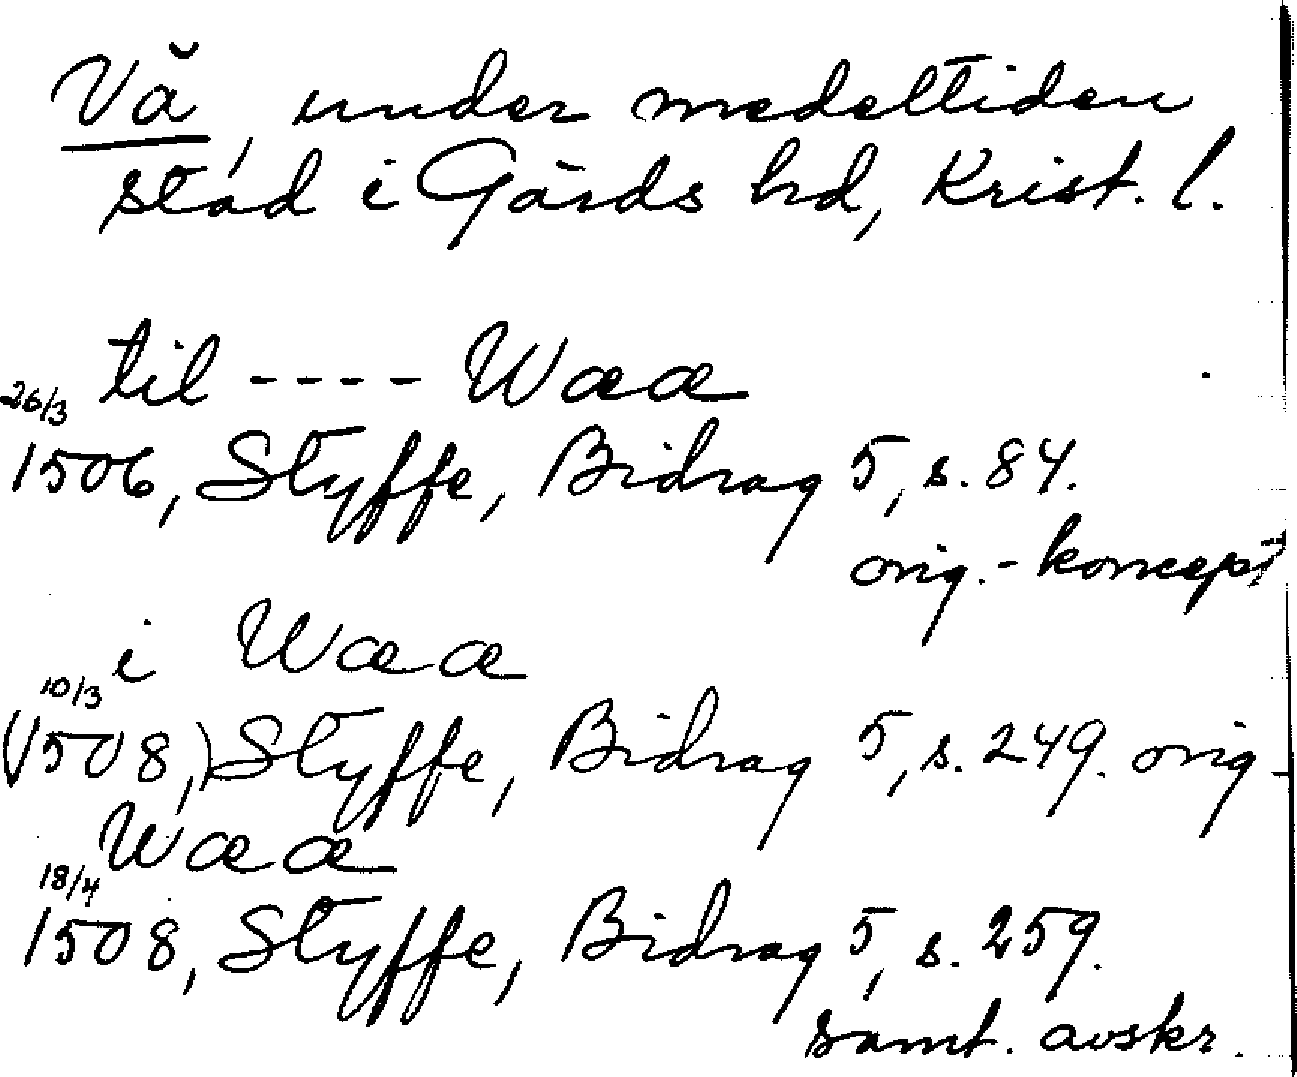 Vä, under medeltiden
stad i Gärds hd, Krist. l.
til ---- Waa
26/3
1506, Styffe, Bidrag 5, s. 84.
orig.-koncept
i Waa
10/3
(1508,) Styffe, Bidrag 5, s. 249. orig
Waa
18/4
1508, Styffe, Bidrag 5, s. 259.
samt. avskr.